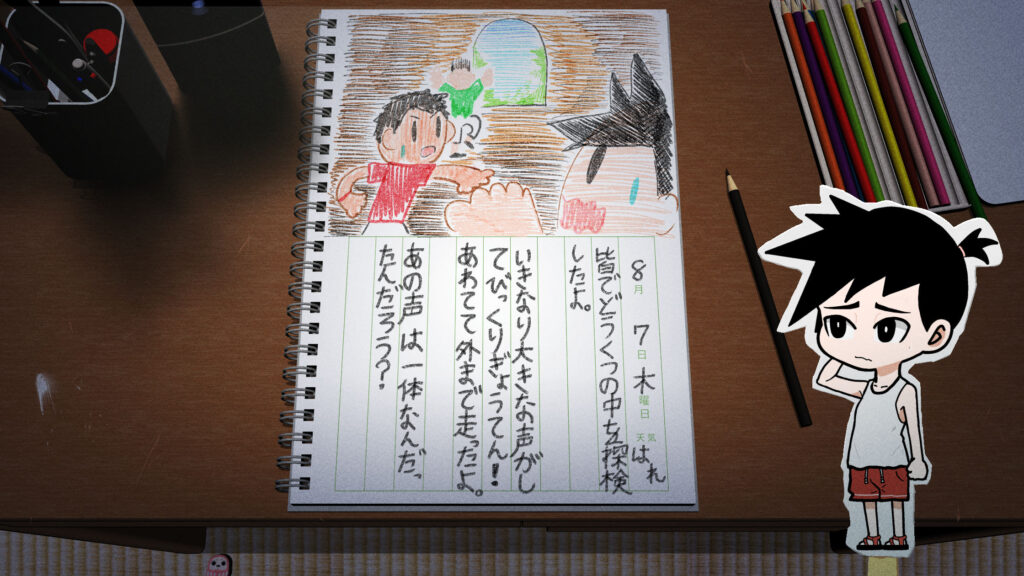 8月 7日 木曜日 天気 はれ
皆でどうくつの中を探検
したよ。
いきなり大きなの声がし
てびっくりぎょうてん!
あわてて外まで走ったよ。
あの声は一体なんだっ
たんだろう?